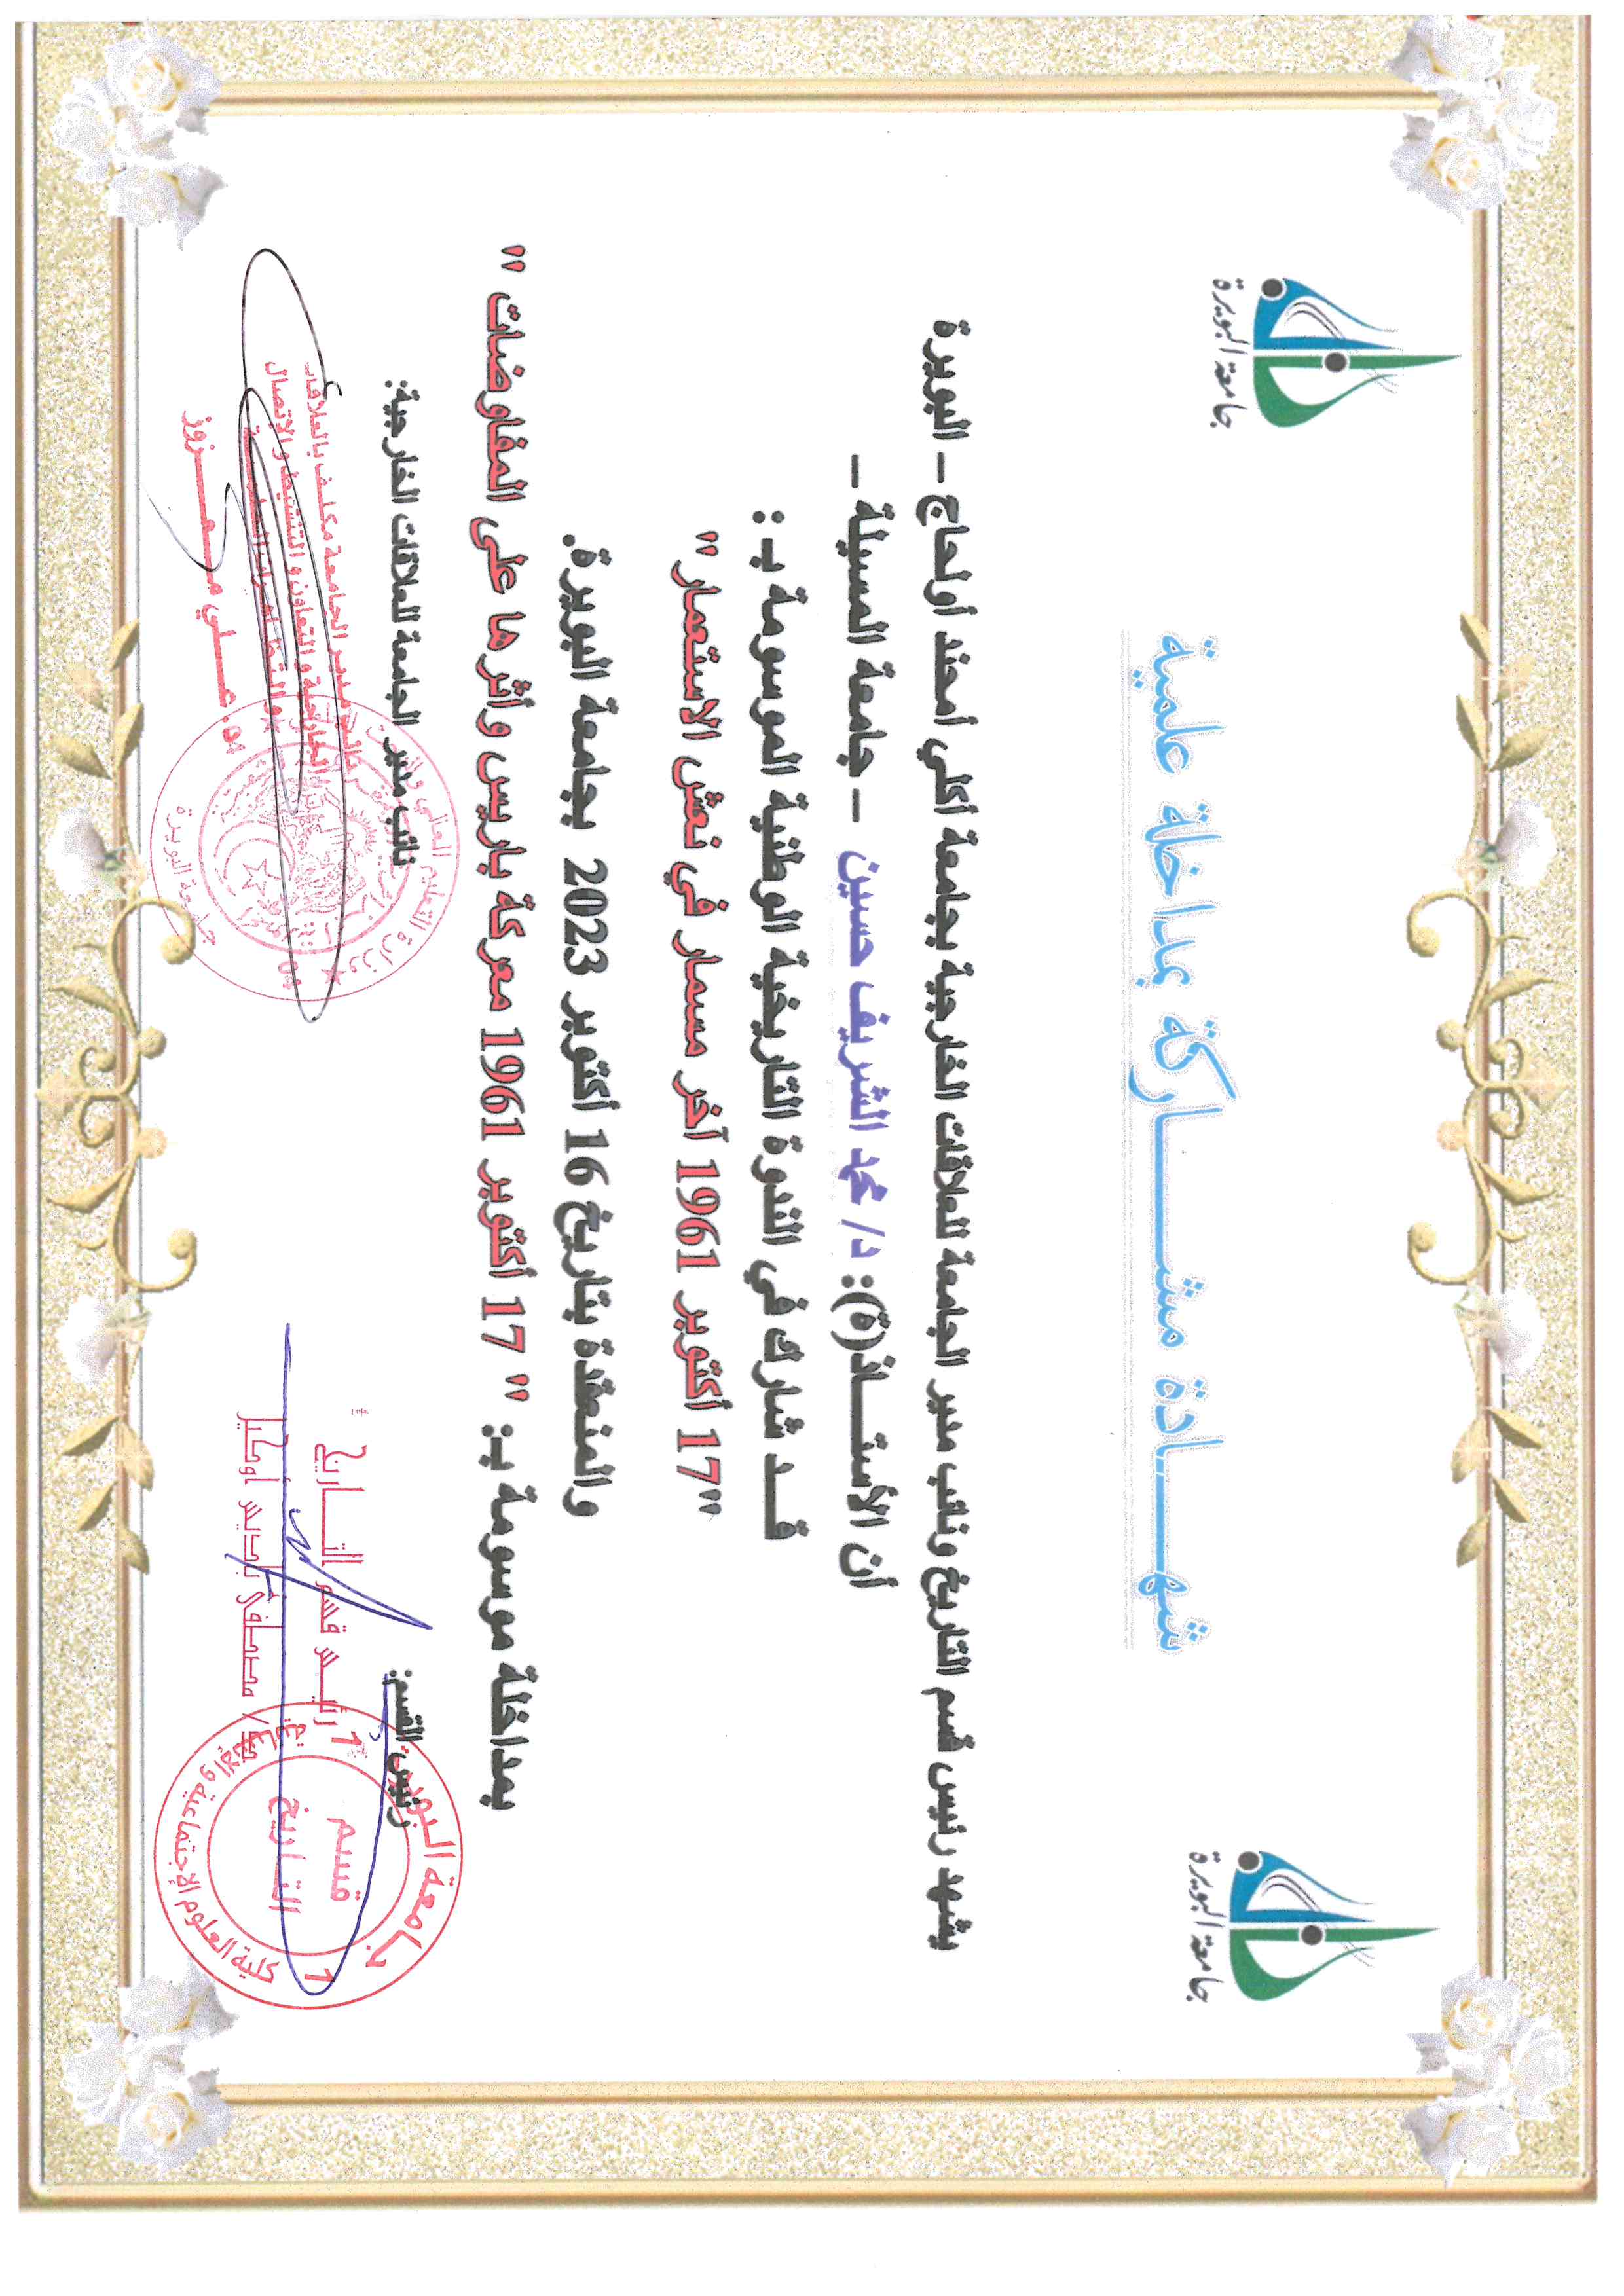 جامعة البويرة
جامعة البويرة
شهـــادة مشـــاركة بمداخلة علمية
يشهد رئيس قسم التاريخ ونائب مدير الجامعة للعلاقات الخارجية بجامعة أكلي أمحند أولحاج – البويرة
أن الأستـــاذ(ة): د/ محمد الشريف حسين – جامعة المسيلة –
قـــد شارك في الندوة التاريخية الوطنية الموسومة بـ :
"17 أكتوبر 1961 آخر مسمار في نعش الاستعمار "
والمنعقدة بتاريخ 16 أكتوبر 2023 بجامعة البويرة.
بمداخلة موسومة بـ: " 17 أكتوبر 1961 معركة باريس وأثرها على المفاوضات "
رئيس القسم:
نائب مدير الجامعة للعلاقات الخارجية:
رئيس قسم التـــاريخ
جامعة البويرة
قسم
التاريخ
كلية العلوم الإجتماعية و
مدير الجامعة مكلف بالعلاقات
الخارجية و التعاون و التنشيط و الاتصال
و التظاهرات
وزارة التعليم العالي و
جامعة البويرة
04